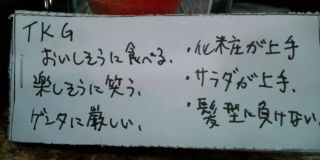 TKG
おいしそうに食べる、
楽しそうに笑う、
ゲンタに厳しい、
・化粧が上手
・サラダが上手、
・髪型に負けない